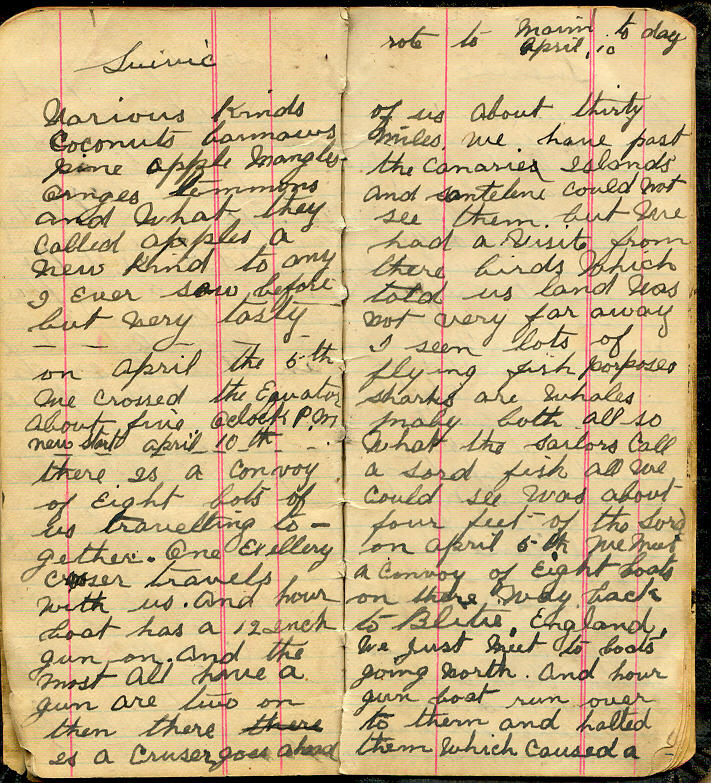 Suivic
Various Kinds
Coconuts bannaws
pine apple Mangles
oringes lemmons
and What they
Called apples a
new Kind to any
I Ever saw before
but very tasty
on April the 5th
We crossed the Equator
About five oclock P.M
new start april 10th
there is a Convoy
of Eight bots of
us travelling to-
gether. One Exellery
Cruser travels
with us. And hour
boat has a 12 inch
gun on. and the
most all have a
gun are two on
then there there
is a Cruser goes ahead
rote to Mamm to day
April, 10
of us about thirty
Miles. We have past
the Canaries Islands
and santelene could Not
see them but We
had a Visit from
there birds Which
told us land Was
Not very far away
I seen lots of
flying fish porposeo
sharks are Whales
maby both all so
What the sailors Call
a sord fish all We
Could see Was about
four feet of the Sord
on april 5th We Meet
a Convoy of Eight boats
on there Way back
to Blitie, England,
We Just Meet to boats
going North. And hour
gun boat run over
to them and halted
them Which Caused a